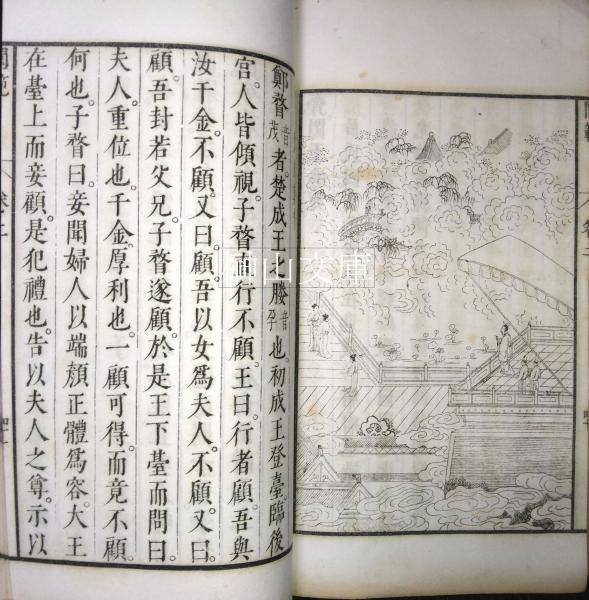 鄭瞀音茂者楚成王之媵音孕也。初成王登臺。臨後
宮。人皆傾視。子瞀直行不顧。王曰。行者顧。吾與
汝千金。不顧。又曰。顧。吾以女爲夫人。不顧。又曰。
顧。吾封若父兄。子瞀遂顧。於是王下臺而問曰。
夫人。重位也。千金。厚利也。一顧可得。而竟不顧。
何也。子瞀曰。妾聞婦人以端顏正體爲容。大王
在臺上而妾顧。是犯禮也。告以夫人之尊。示以
閨範
卷二
榊山文庫